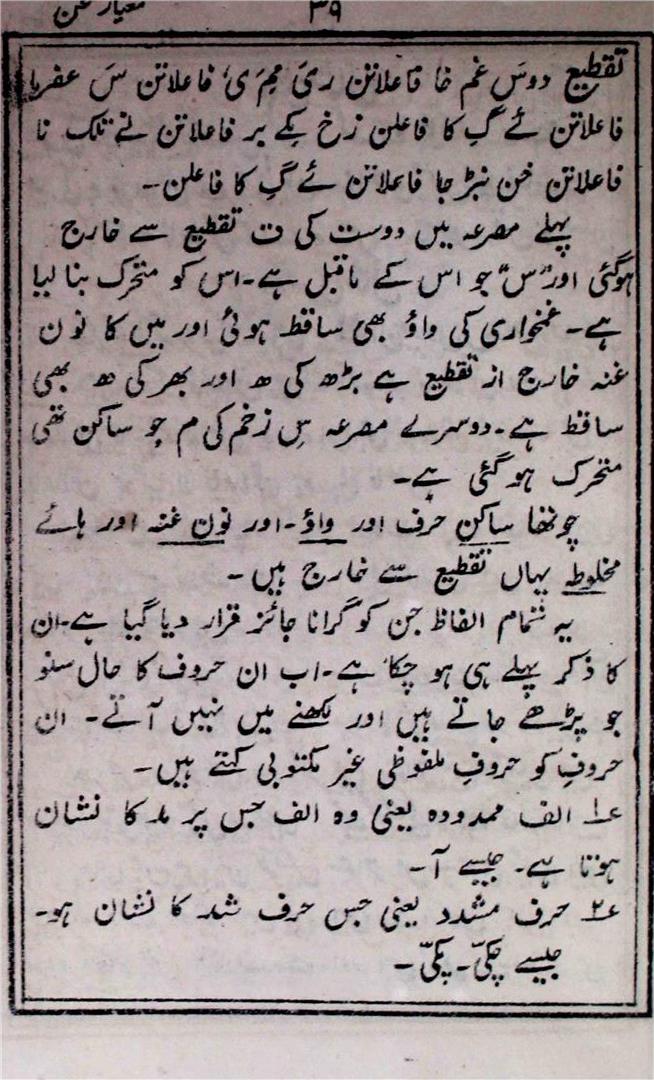 معیار فن ۳۹
تقطیع دوسَ غم خا فاعلاتن ریَ مِرَ یُ فاعلاتن سَ عفرما
فاعلاتن ئے گِ کا فاعلن زخ مِکے بر فاعلاتن نے تلک نا
فاعلاتن خن نبڑ جا فاعلاتن ئے گِ کا فاعلن۔
پہلے مصرعہ میں دوست کی ت تقطیع سے خارج
ہوگئی اور "س" جو اس کے ماقبل ہے۔ اس کو متحرک بنا لیا
ہے۔ غمخواری کی واؤ بھی ساقط ہوئی اور میں کا نون
غنہ خارج از تقطیع ہے بڑھ کی ھ اور بھر کی ھ بھی
ساقط ہے۔ دوسرے مصرعہ میں زخم کی م جو ساکن تھی
متحرک ہو گئی ہے۔
چوتھا ساکن حرف اور واؤ۔ اور نون غنہ اور ہائے
مخلوطہ یہاں تقطیع سے خارج ہیں۔
یہ تمام الفاظ جن کو گرانا جائز قرار دیا گیا ہے۔ ان
کا ذکر پہلے ہی ہو چکا ہے۔ اب ان حروف کا حال سنو
جو پڑھے جاتے ہیں اور لکھنے میں نہیں آتے۔ ان
حروف کو حروفِ ملفوظی غیر مکتوبی کہتے ہیں۔
۱؎ الف ممدودہ یعنی وہ الف جس پر مد کا نشان
ہوتا ہے۔ جیسے آ۔
۲؎ حرف مشدد یعنی جس حرف شد کا نشان ہو۔
جیسے چکّی۔ پکّی۔